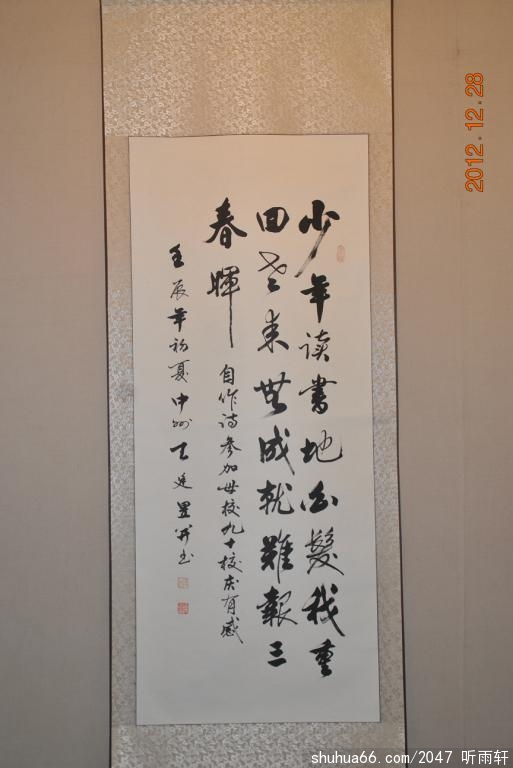 少年读书地白发我重
回老来无成就难报三
春晖
自作诗参加母校九十校庆有感
壬辰年初夏中州王廷昱并书
2012.12.28
shuhua66.com/2047 听雨轩